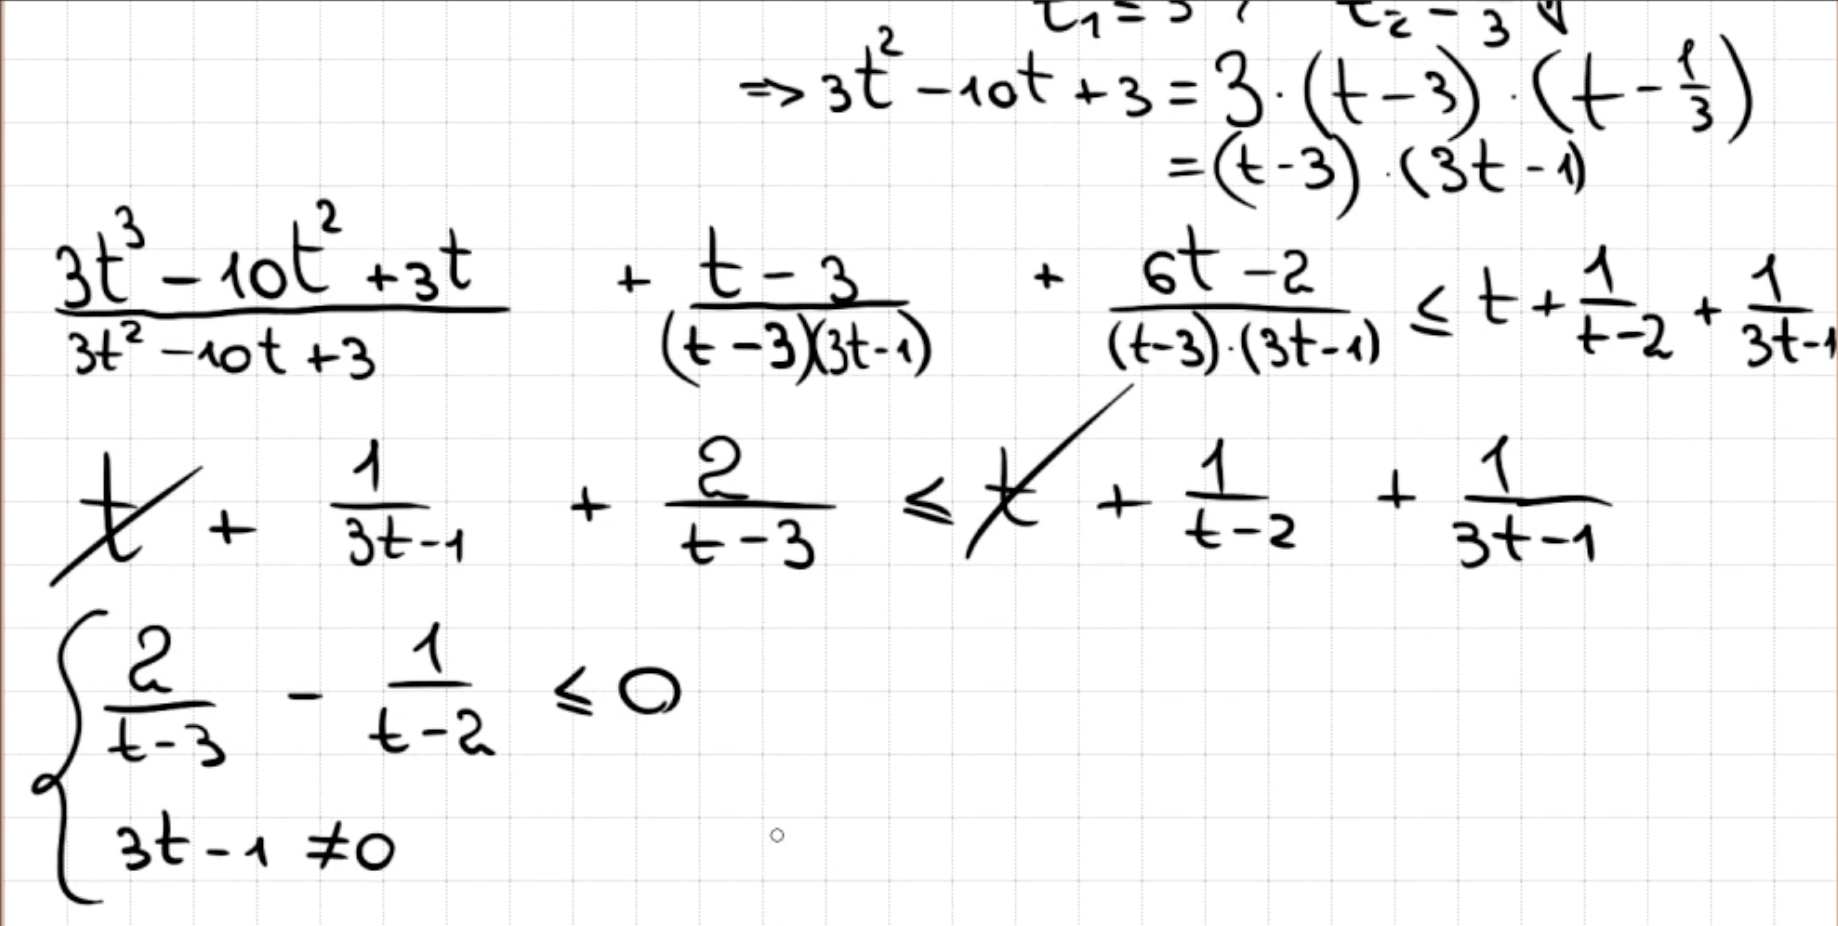 t₁ = 3 ; t₂ = 3
⇒ 3t² - 10t + 3 = 3 · (t - 3) · (t - 1/3)
= (t - 3) · (3t - 1)
(3t³ - 10t² + 3t)/(3t² - 10t + 3) + (t - 3)/((t - 3)(3t - 1)) + (6t - 2)/((t - 3) · (3t - 1)) ≤ t + 1/(t - 2) + 1/(3t - 1)
t + 1/(3t - 1) + 2/(t - 3) ≤ t + 1/(t - 2) + 1/(3t - 1)
{ 2/(t - 3) - 1/(t - 2) ≤ 0
3t - 1 ≠ 0